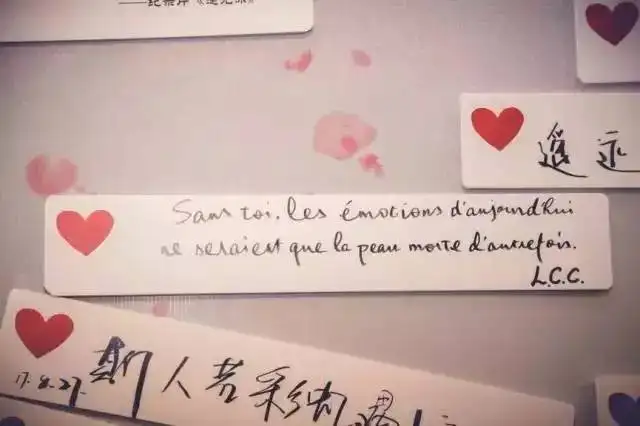 Sans toi, les émotions d'aujourd'hui
ne seraient que la peau morte d'autrefois.
L.C.C.
17.8.27. 斯人若彩虹 遇